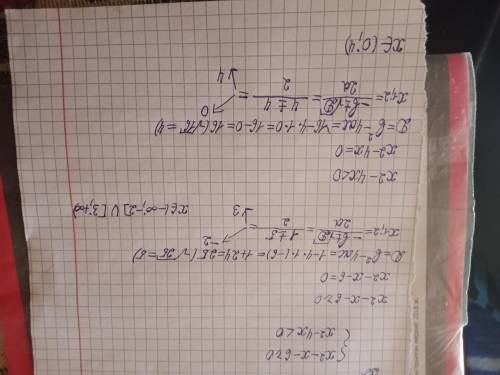 { x2-x-6≥0
{ x2-4x<0
x2-x-6≥0
x2-x-6=0
D=b²-4ac=1-4·1·(-6)=1+24=25(√25=5)
x1;2= -b±√D / 2a = 1±5 / 2 =
-2
3
x∈(-∞;-2]∪[3;+∞)
x2-4x<0
x2-4x=0
D=b²-4ac=16-4·1·0=16-0=16(√16=4)
x1;2= -b±√D / 2a = 4±4 / 2 =
0
4
x∈(0;4)